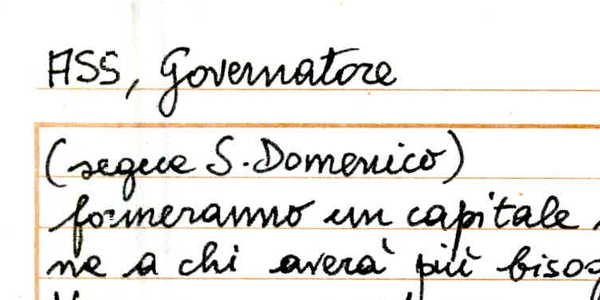 ASS, Governatore
(segue S. Domenico)
formeranno un capitale
ne a chi averà più bisog